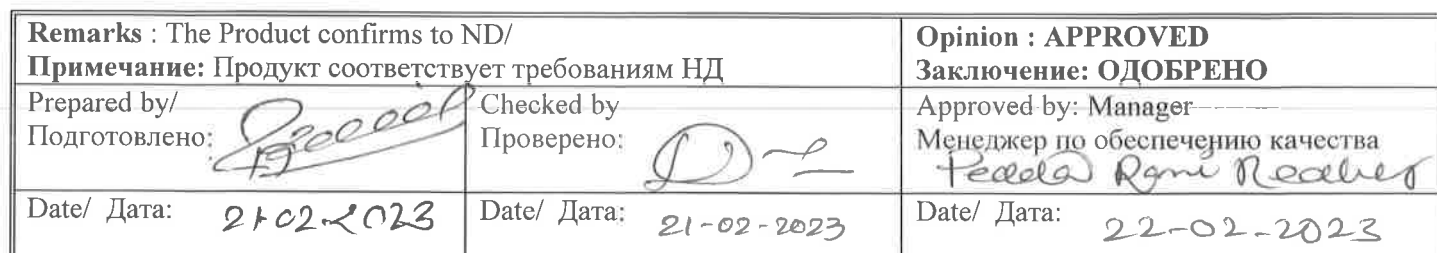 Remarks : The Product confirms to ND/
Примечание: Продукт соответствует требованиям НД
Opinion : APPROVED
Заключение: ОДОБРЕНО
Prepared by/
Подготовлено:
Checked by
Проверено:
Approved by: Manager
Менеджер по обеспечению качества
Date/ Дата: 21-02-2023
Date/ Дата: 21-02-2023
Date/ Дата: 22-02-2023